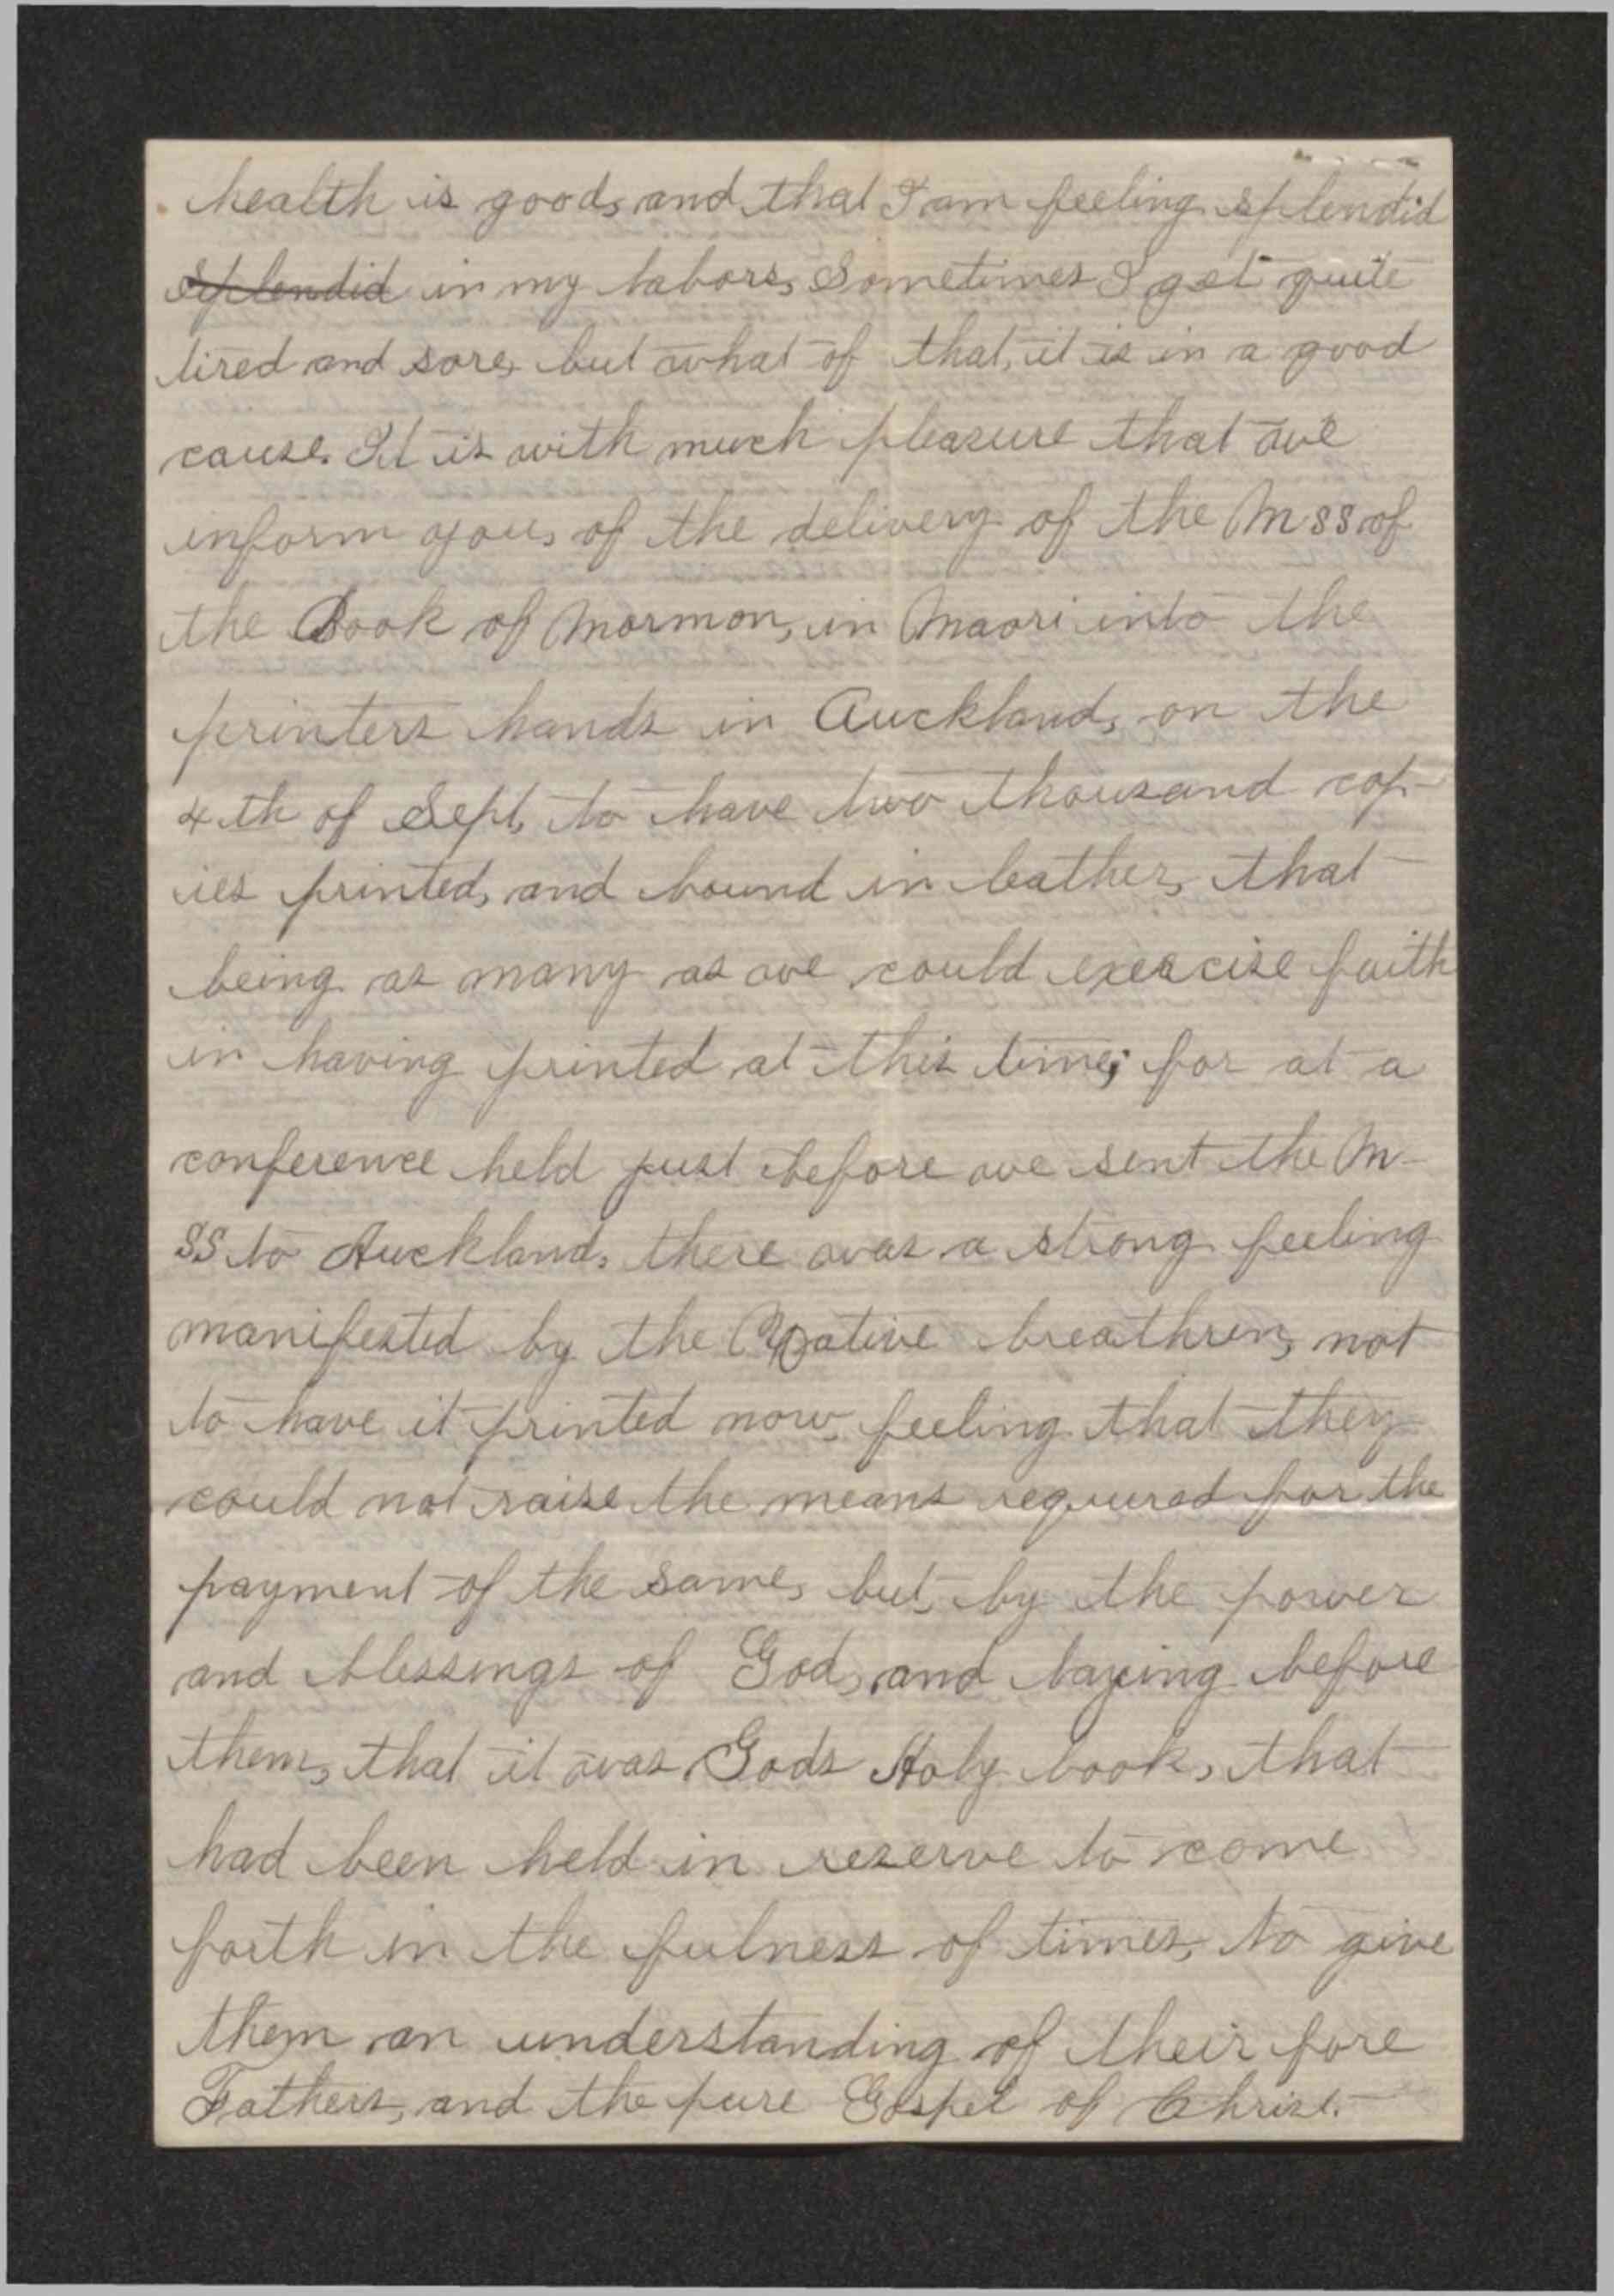 health is good, and that I am feeling splendid
splendid in my labors, Sometimes I get quite
tired and sore, but what of that, it is in a good
cause. It is with much pleasure that we
inform you, of the delivery of the Mss of
the Book of Mormon, in Maori into the
printers hands in Auckland, on the
4th of Sept, to have two thousand cop-
ies printed, and bound in leather, that
being as many as we could exercise faith
in having printed at this time; for at a
conference held just before we sent the M-
SS to Auckland, there was a strong feeling
manifested by the Native breathren, not
to have it printed now, feeling that they
could not raise the means required for the
payment of the same, but, by the power
and blessings of God, and laying before
them, that it was Gods Holy book, that
had been held in reserve to come
forth in the fulness of times, to give
them an understanding of their fore
Fathers, and the pure Gospel of Christ.